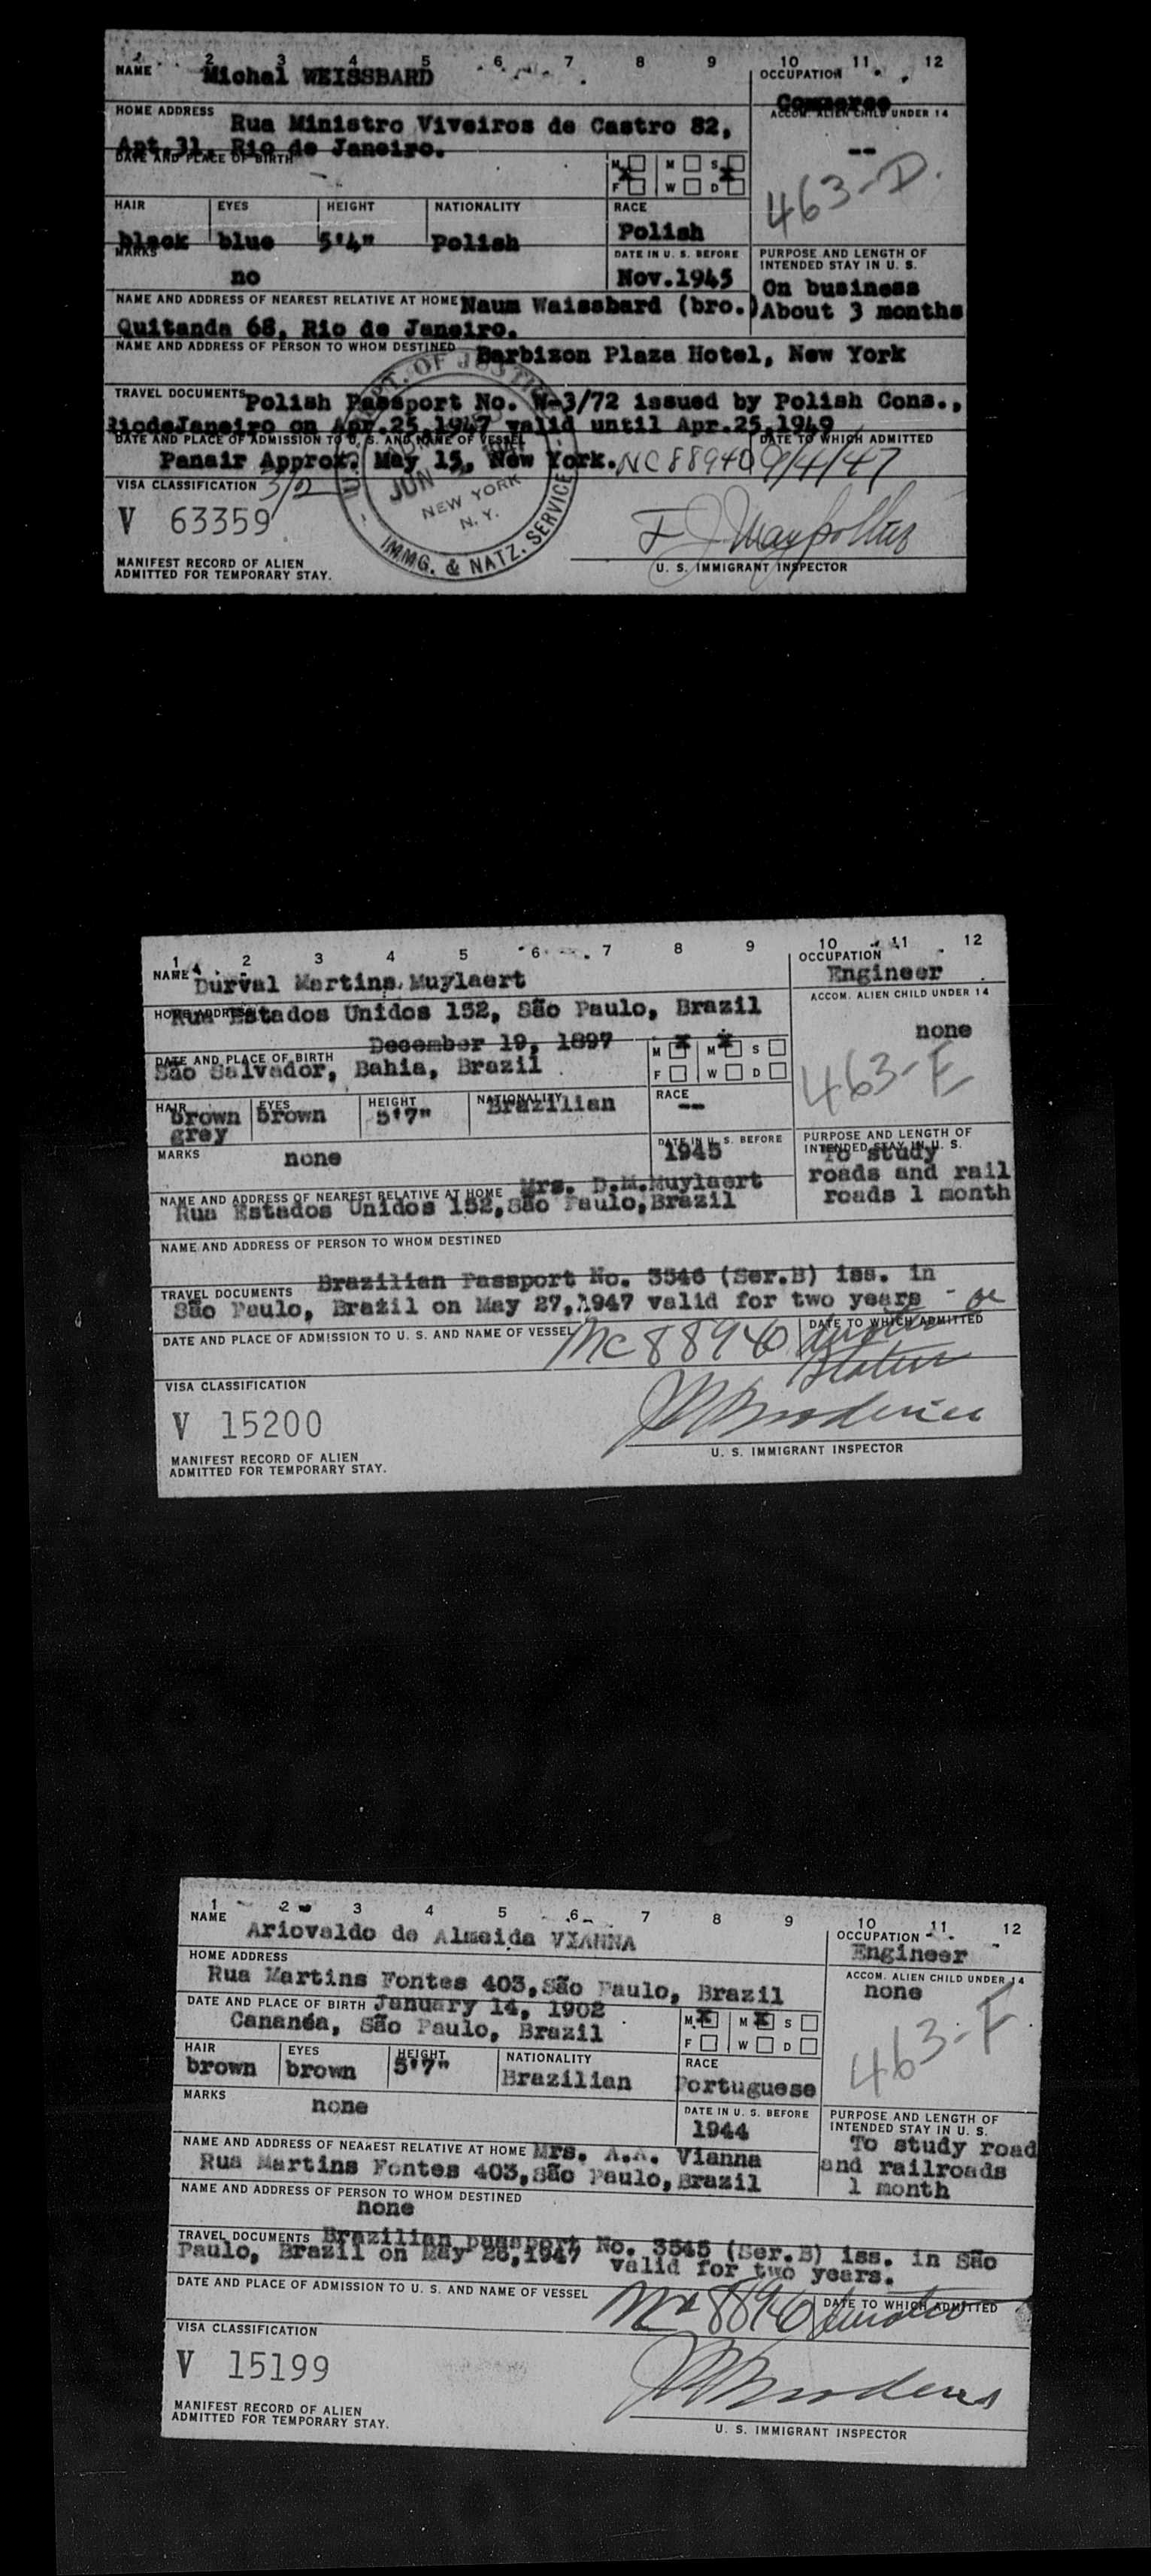 1 2 3 4 5 6 7 8 9 10 11 12
NAME Michal WEISSBARD
OCCUPATION
Commerce
HOME ADDRESS Rua Ministro Viveiros de Castro 82,
Apt.31, Rio de Janeiro.
ACCOM. ALIEN CHILD UNDER 14
--
DATE AND PLACE OF BIRTH
M X M S X
F W D
463-D.
HAIR EYES HEIGHT NATIONALITY RACE
black blue 5'4" Polish Polish
MARKS
no
DATE IN U. S. BEFORE
Nov.1945
PURPOSE AND LENGTH OF
INTENDED STAY IN U. S.
On business
About 3 months
NAME AND ADDRESS OF NEAREST RELATIVE AT HOME Naum Waissbard (bro.)
Quitanda 68, Rio de Janeiro.
NAME AND ADDRESS OF PERSON TO WHOM DESTINED Barbizon Plaza Hotel, New York
TRAVEL DOCUMENTS Polish Passport No. W-3/72 issued by Polish Cons.,
RiodeJaneiro on Apr.25,1947 valid until Apr.25,1949
DATE AND PLACE OF ADMISSION TO U. S. AND NAME OF VESSEL
DATE TO WHICH ADMITTED
Panair Approx. May 15, New York. NC 88940 9/4/47
VISA CLASSIFICATION 3/2
V 63359
U.S. DEPT. OF JUSTICE
JUN
NEW YORK
N. Y.
IMMG. & NATZ. SERVICE
MANIFEST RECORD OF ALIEN
ADMITTED FOR TEMPORARY STAY.
U. S. IMMIGRANT INSPECTOR
1 2 3 4 5 6 7 8 9 10 11 12
NAME Durval Martins Muylaert
OCCUPATION
Engineer
HOME ADDRESS Rua Estados Unidos 152, São Paulo, Brazil
ACCOM. ALIEN CHILD UNDER 14
none
December 19, 1897
DATE AND PLACE OF BIRTH
São Salvador, Bahia, Brazil
M X M X S
F W D
463-E
HAIR EYES HEIGHT NATIONALITY RACE
brown brown 5'7" Brazilian --
grey
MARKS none
DATE IN U. S. BEFORE
1945
PURPOSE AND LENGTH OF
INTENDED STAY IN U. S.
To study
roads and rail
roads 1 month
NAME AND ADDRESS OF NEAREST RELATIVE AT HOME Mrs. D.M.Muylaert
Rua Estados Unidos 152,São Paulo,Brazil
NAME AND ADDRESS OF PERSON TO WHOM DESTINED
TRAVEL DOCUMENTS Brazilian Passport No. 3546 (Ser.B) iss. in
São Paulo, Brazil on May 27,1947 valid for two years
DATE AND PLACE OF ADMISSION TO U. S. AND NAME OF VESSEL
DATE TO WHICH ADMITTED
NC 88940
VISA CLASSIFICATION
V 15200
MANIFEST RECORD OF ALIEN
ADMITTED FOR TEMPORARY STAY.
U. S. IMMIGRANT INSPECTOR
1 2 3 4 5 6 7 8 9 10 11 12
NAME Ariovaldo de Almeida VIANNA
OCCUPATION
Engineer
HOME ADDRESS
Rua Martins Fontes 403,São Paulo, Brazil
ACCOM. ALIEN CHILD UNDER 14
none
DATE AND PLACE OF BIRTH January 14, 1902
Cananéa, São Paulo, Brazil
M X M X S
F W D
463-F
HAIR EYES HEIGHT NATIONALITY RACE
brown brown 5'7" Brazilian Portuguese
MARKS none
DATE IN U. S. BEFORE
1944
PURPOSE AND LENGTH OF
INTENDED STAY IN U. S.
To study road
and railroads
1 month
NAME AND ADDRESS OF NEAREST RELATIVE AT HOME Mrs. A.A. Vianna
Rua Martins Fontes 403,São Paulo,Brazil
NAME AND ADDRESS OF PERSON TO WHOM DESTINED
none
TRAVEL DOCUMENTS Brazilian passport No. 3545 (Ser.B) iss. in São
Paulo, Brazil on May 26,1947 valid for two years.
DATE AND PLACE OF ADMISSION TO U. S. AND NAME OF VESSEL
DATE TO WHICH ADMITTED
VISA CLASSIFICATION
V 15199
MANIFEST RECORD OF ALIEN
ADMITTED FOR TEMPORARY STAY.
U. S. IMMIGRANT INSPECTOR